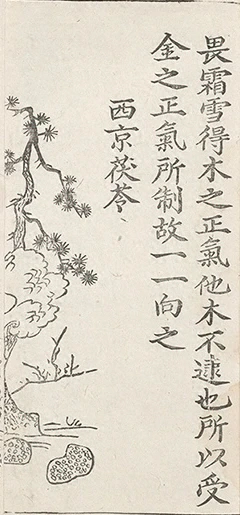 畏霜雪得木之正氣他木不逮也所以受
金之正氣所制故一一向之
西京茯苓